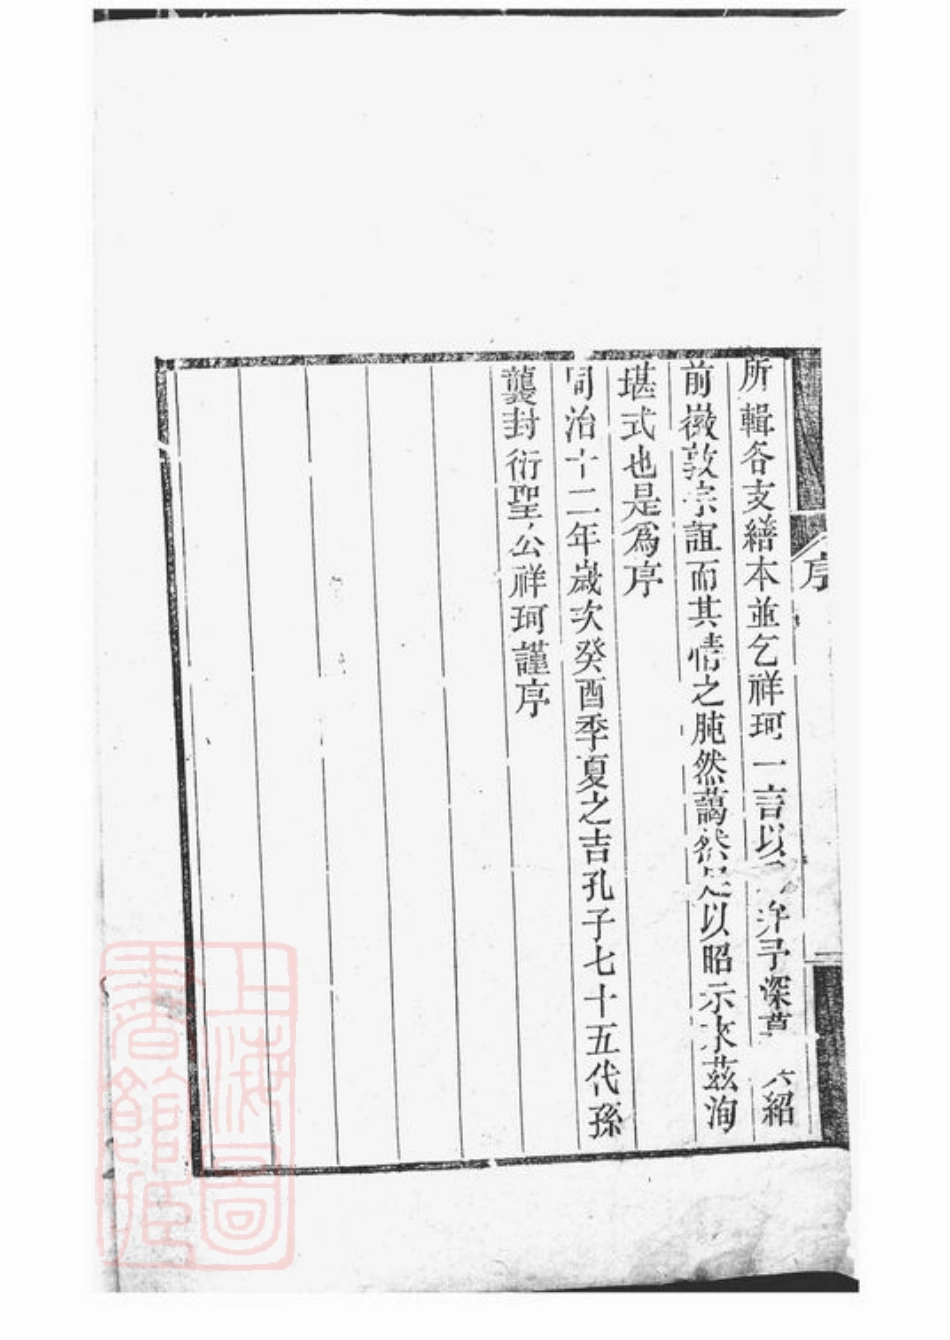 序
所輯各支繕本並乞祥珂一言以弁予深慕紹
前徽敦宗誼而其情之肫然藹然足以昭示來茲洵
堪式也是為序
同治十二年歲次癸酉季夏之吉孔子七十五代孫
襲封衍聖公祥珂謹序
上海圖
書館藏